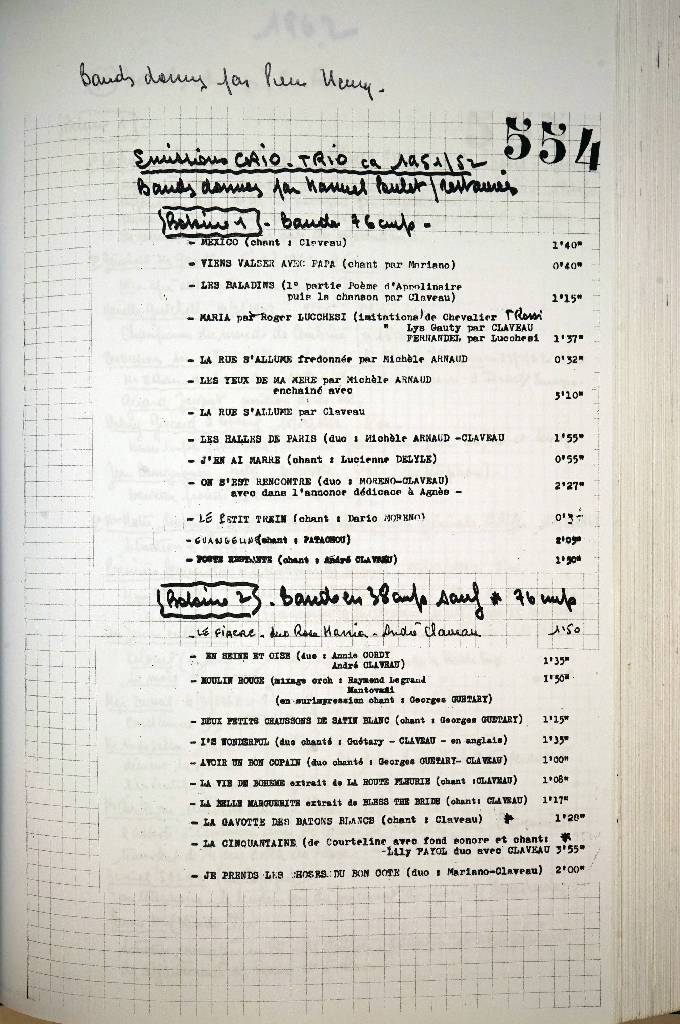 1962
Bandes données par Pierre
554
Emissions CRIO-TRIO ca 1951/52
Bandes données par Manuel Poulet/restaurées
Bobine 1 - Bande 76 cmps -
- MEXICO (chant : Claveau) 1'40"
- VIENS VALSER AVEC PAPA (chant par Mariano) 0'40"
- LES BALADINS (1° partie Poème d'Appolinaire
puis la chanson par Claveau) 1'15"
- MARIA par Roger LUCCHESI (imitations de Chevalier T Rossi
" Lys Gauty par CLAVEAU
FERNANDEL par Lucchesi 1'37"
- LA RUE S'ALLUME fredonnée par Michèle ARNAUD 0'32"
- LES YEUX DE MA MERE par Michèle ARNAUD
enchainé avec 5'10"
- LA RUE S'ALLUME par Claveau
- LES HALLES DE PARIS (duo : Michèle ARNAUD -CLAVEAU 1'55"
- J'EN AI MARRE (chant : Lucienne DELYLE) 0'55"
- ON S'EST RENCONTRE (duo : MORENO-CLAVEAU) 2'27"
avec dans l'annonce dédicace à Agnès -
- LE PETIT TREIN (chant : Dario MORENO) 0'3
- EVANGELINE (chant : PATACHOU) 2'09"
- POSTE RESTANTE (chant : André CLAVEAU) 1'50"
Bobine 2 - Bandes en 38 cmps sauf * 76 cmps
- LE FIACRE - duo Rose Mania - André Claveau 1'50
- EN SEINE ET OISE (duo : Annie CORDY
André CLAVEAU) 1'35"
- MOULIN ROUGE (mixage orch : Raymond Legrand 1'50"
Mantovani
(en surimpression chant : Georges GUETARY)
- DEUX PETITS CHAUSSONS DE SATIN BLANC (chant : Georges GUETARY) 1'15"
- I'S WONDERFUL (duo chanté : Guétary - CLAVEAU - en anglais) 1'35"
- AVOIR UN BON COPAIN (duo chanté : Georges GUETARY- CLAVEAU) 1'00"
- LA VIE DE BOHEME extrait de LA ROUTE FLEURIE (chant :CLAVEAU) 1'08"
- LA BELLE MARGUERITE extrait de BLESS THE BRIDE (chant: CLAVEAU) 1'17"
- LA GAVOTTE DES BATONS BLANCS (chant : Claveau) * 1'28"
- LA CINQUANTAINE (de Courteline avec fond sonore et chant: *
-Lily FAYOL duo avec CLAVEAU 3'55"
- JE PRENDS LES CHOSES DU BON COTE (duo : Mariano-Claveau) 2'00"